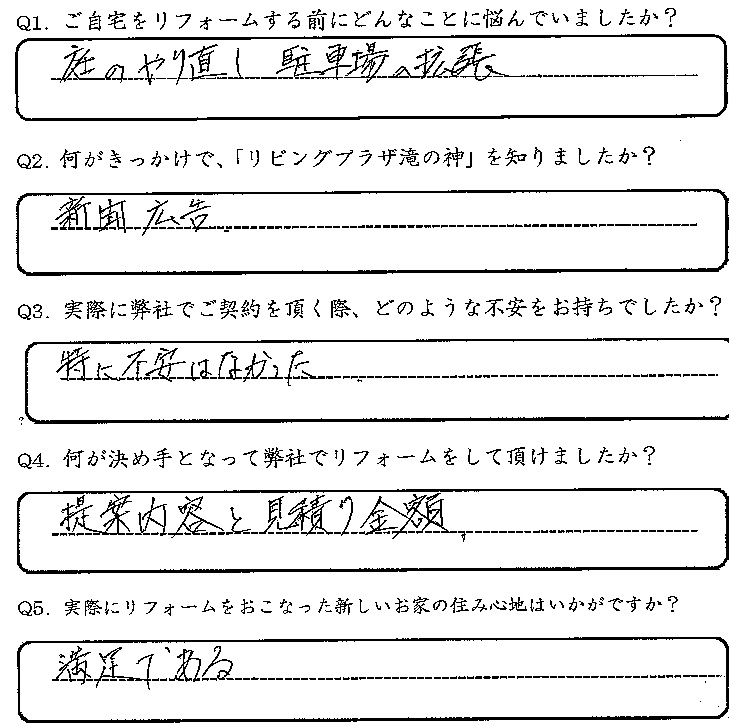 Q1. ご自宅をリフォームする前にどんなことに悩んでいましたか？
庭のやり直し 駐車場の拡張
Q2. 何がきっかけで、「リビングプラザ滝の神」を知りましたか？
新聞広告
Q3. 実際に弊社でご契約を頂く際、どのような不安をお持ちでしたか？
特に不安はなかった
Q4. 何が決め手となって弊社でリフォームをして頂けましたか？
提案内容と見積り金額
Q5. 実際にリフォームをおこなった新しいお家の住み心地はいかがですか？
満足である